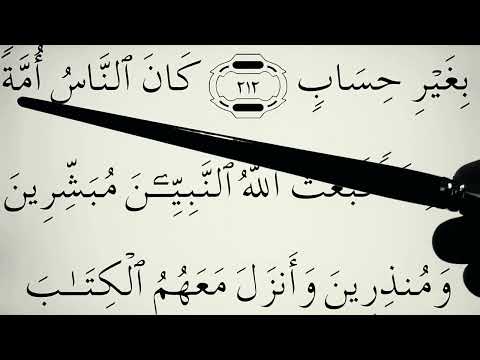 بِغَيْرِ حِسَابٍ ٢١٢ كَانَ ٱلنَّاسُ أُمَّةً
فَبَعَثَ ٱللَّهُ ٱلنَّبِيِّـۧنَ مُبَشِّرِينَ
وَمُنذِرِينَ وَأَنزَلَ مَعَهُمُ ٱلْكِتَـٰبَ